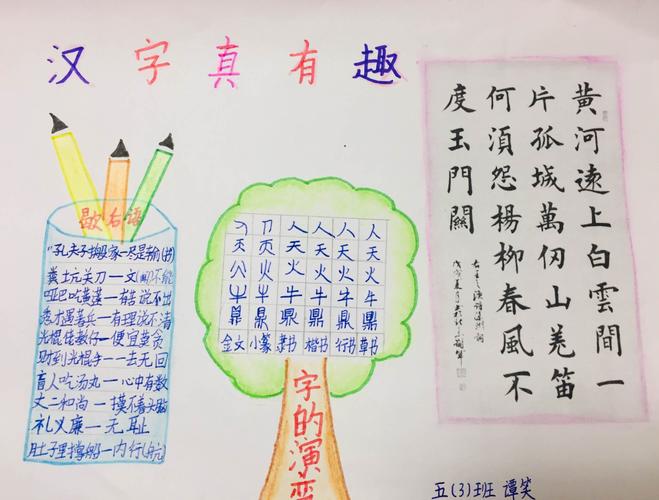 汉字真有趣
歇后语
"孔夫子搬家—尽是输(书)
粪土坑关刀—文(闻)不能
哑巴吃黄莲—有苦说不出
秀才遇着兵—有理说不清
光棍佬教仔—便宜莫贪
财到光棍手—一去无回
盲人吃汤丸—心中有数
丈二和尚—摸不着头脑
礼义廉—无耻
肚子里撑船—内行(航)
人 人 人 人
天 天 天 天
火 火 火 火
牛 牛 牛 牛
鼎 鼎 鼎 鼎
金文 小篆 隶书 楷书 行书 草书
字的演变
黄河遠上白雲間一
片孤城萬仞山羌笛
何須怨楊柳春風不
度玉門關
五(3)班 谭笑